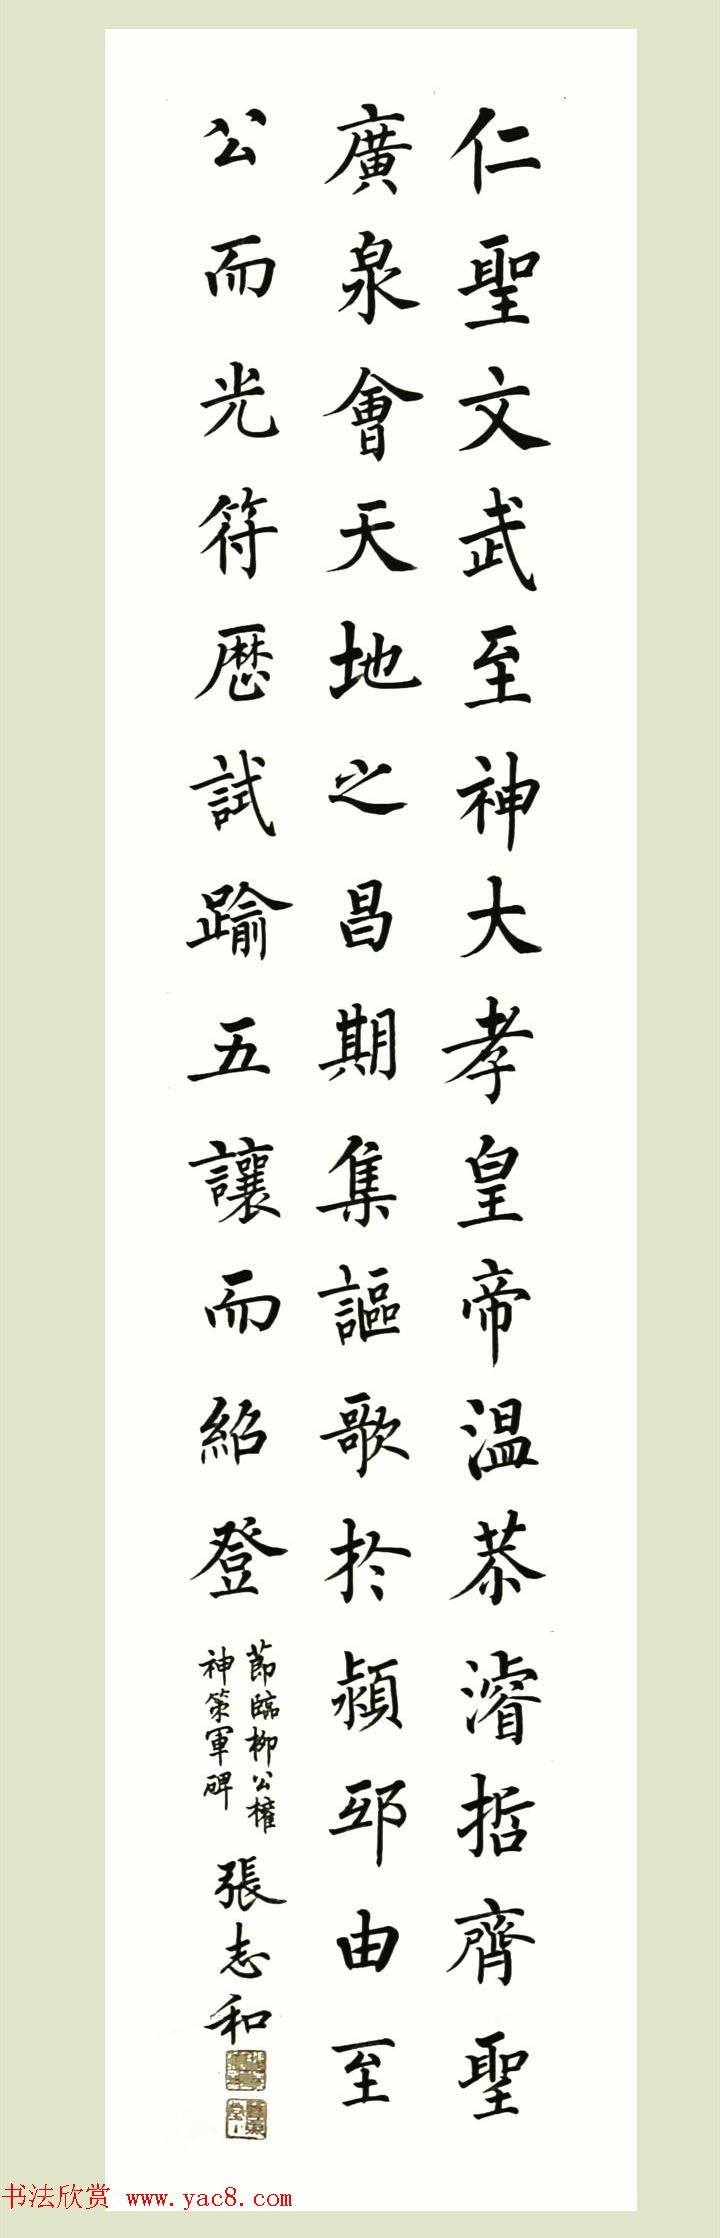 仁聖文武至神大孝皇帝温恭濬哲齊聖
廣泉會天地之昌期集謳歌於潁邸由至
公而光符歷試踰五讓而紹登
節臨柳公權
神策軍碑
張志和
书法欣赏 www.yac8.com